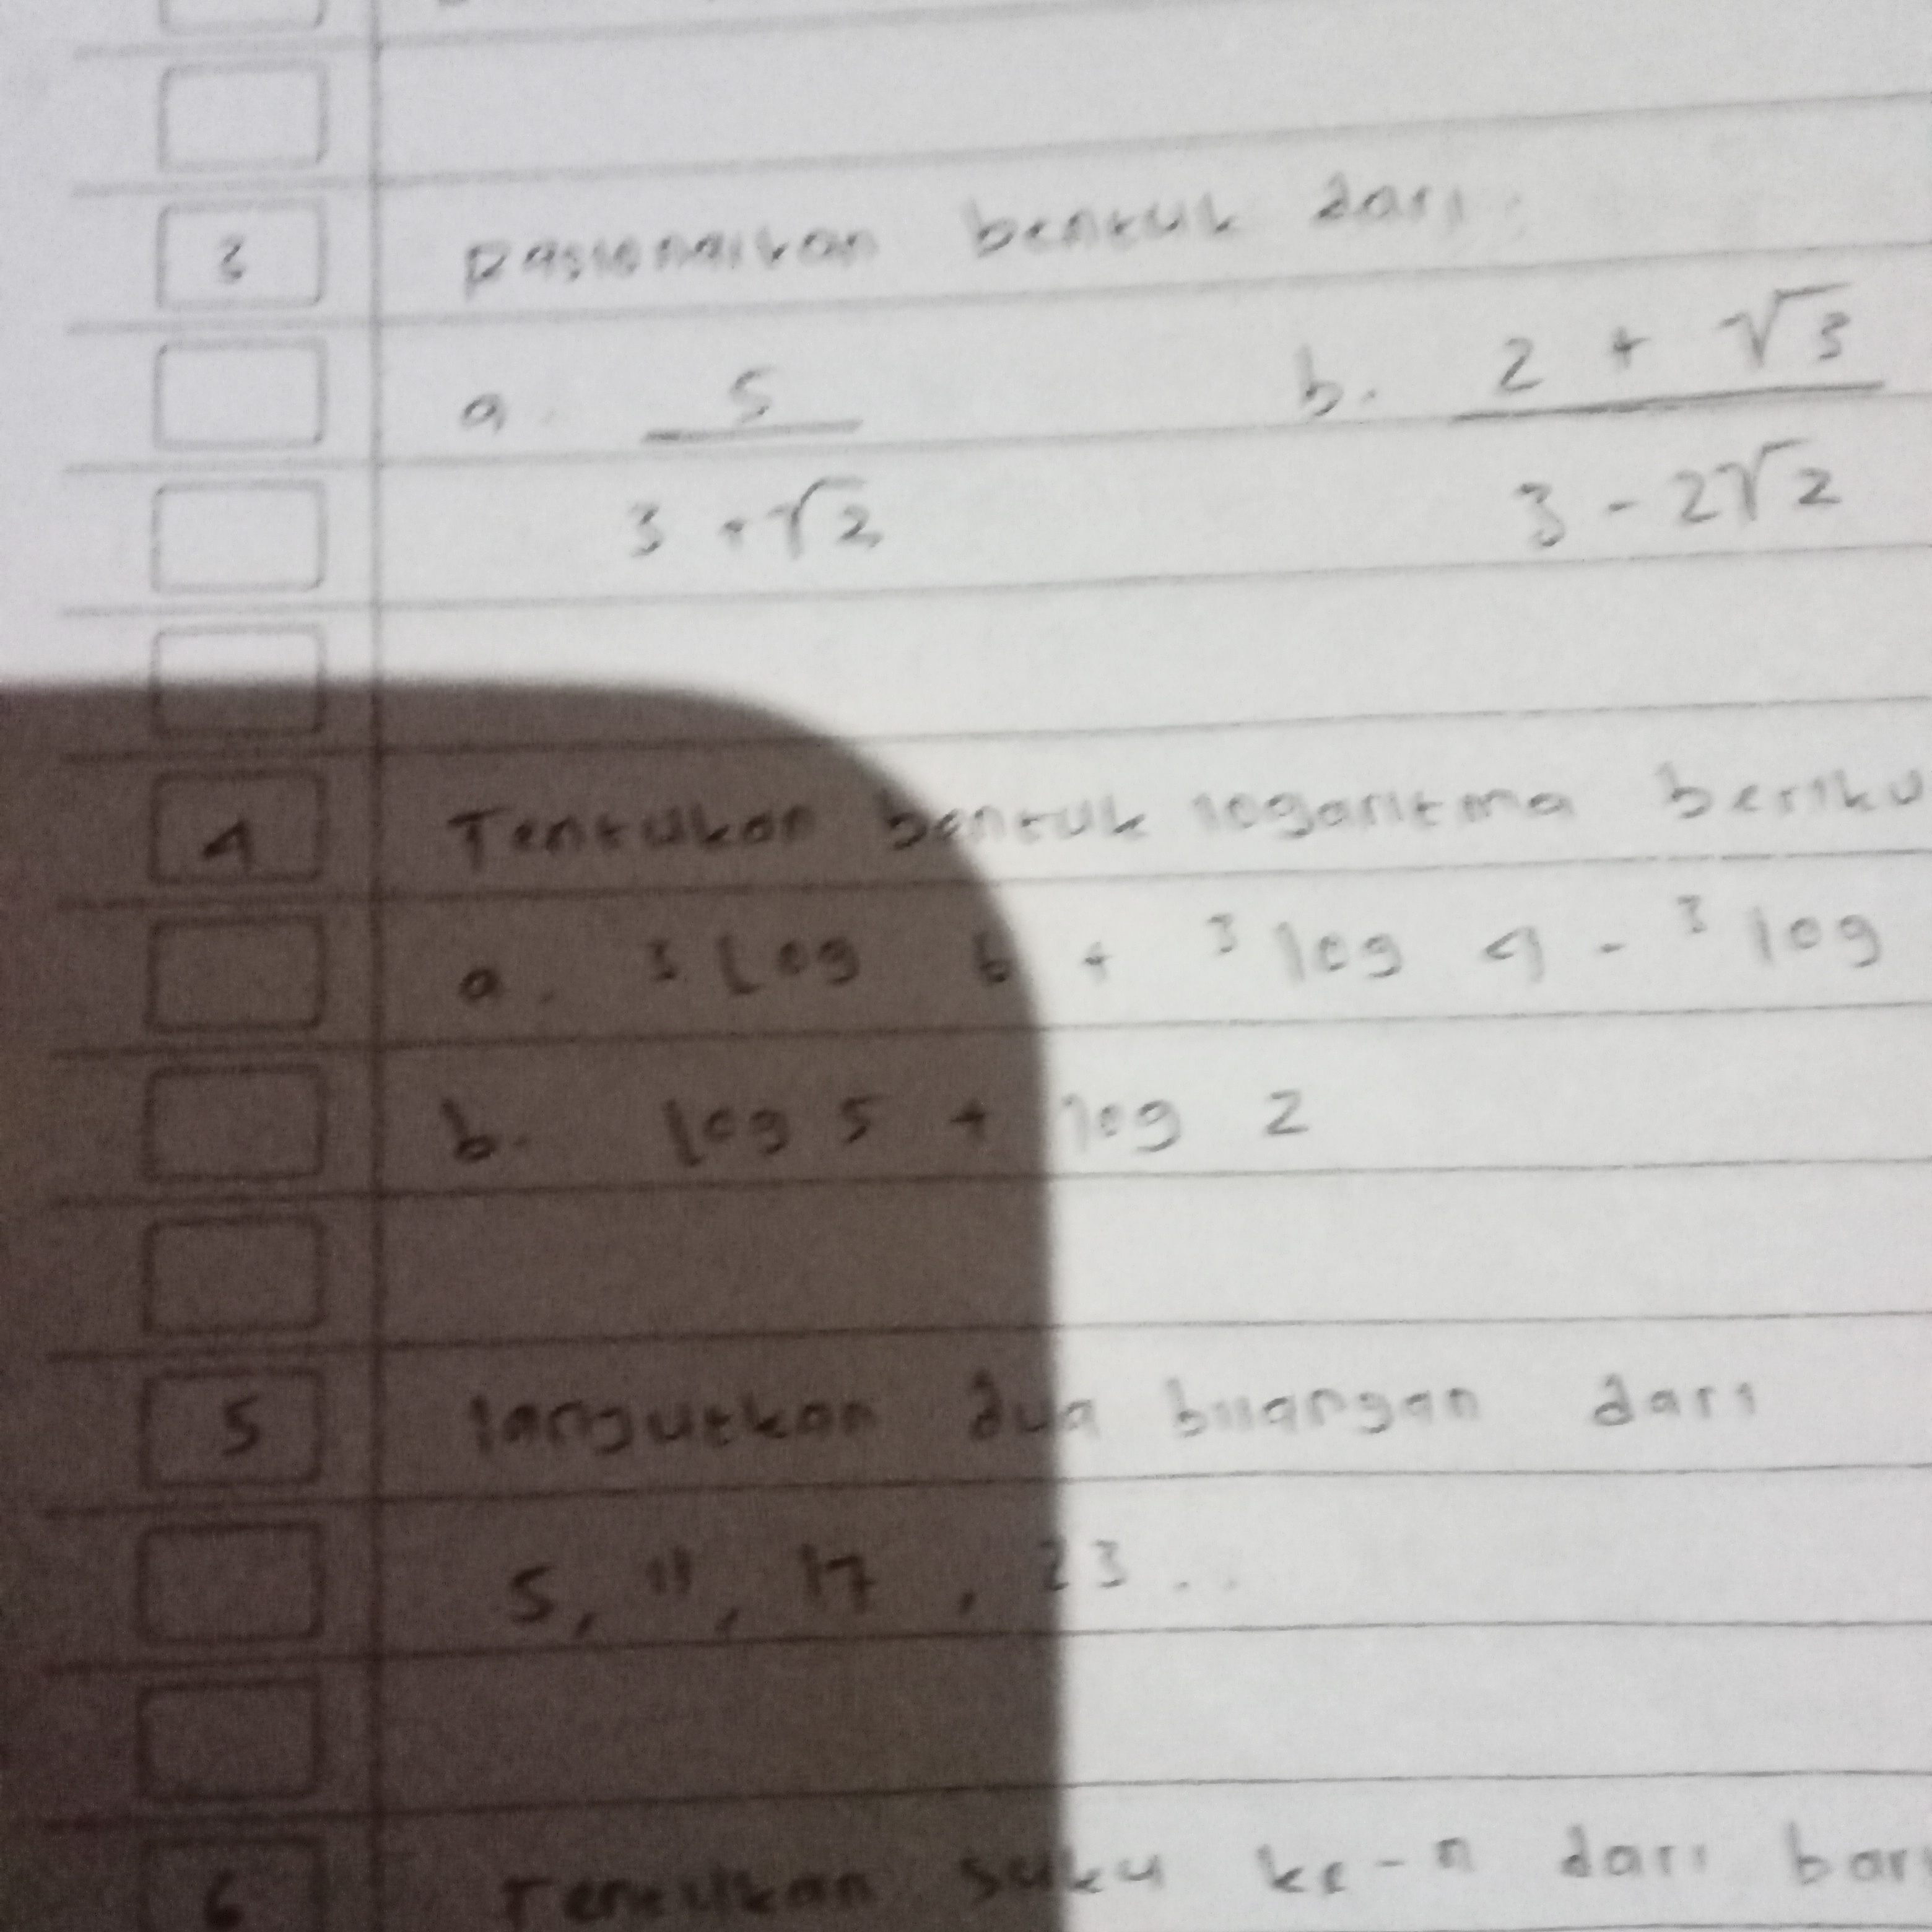 3 Rasionalkan bentuk dari:
a. 5 / 3 + √2 b. 2 + √3 / 3 - 2√2
4 Tentukan bentuk logaritma beriku
a. ³ Log 6 + ³ log 4 - ³ log
b. log 5 + log 2
5 lanjutkan dua bilangan dari
5, 11, 17, 23...
6 Tentukan suku ke-n dari bar